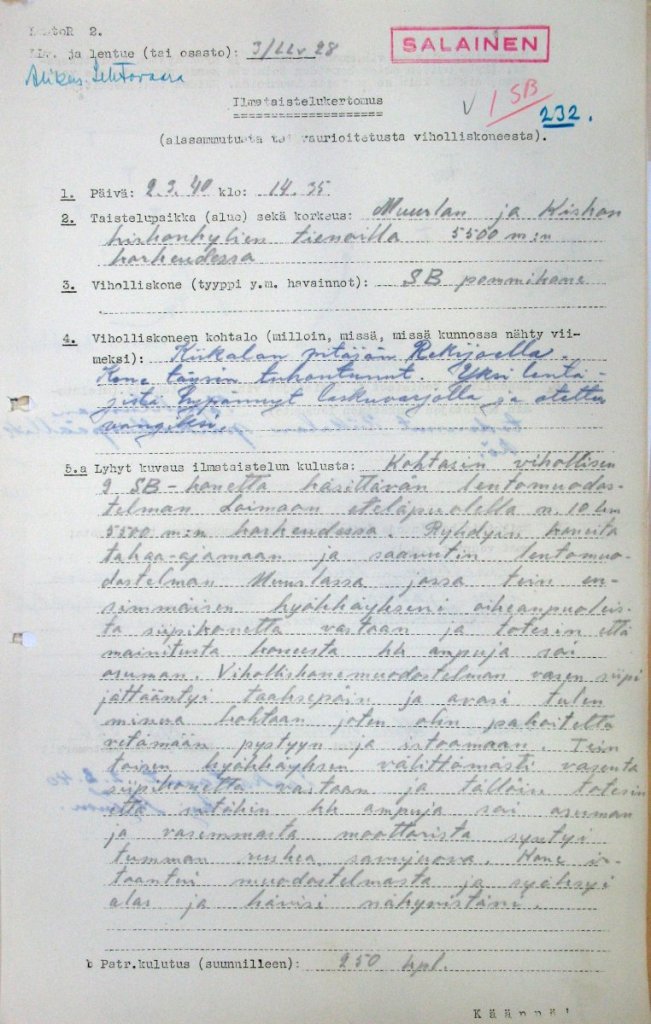 LentoR 2.
SALAINEN
Llv. ja lentue (tai osasto): 3/LLv 28
Alikers. Lehtovaara
Ilmataistelukertomus
V 1 SB
232.
(alasammutusta tai vaurioitetusta viholliskoneesta).
1. Päivä: 2.3.40 klo: 14.35
2. Taistelupaikka (alue) sekä korkeus: Muurlan ja Kiskon
kirkonkylien tienoilla 5500 m:n
korkeudessa
3. Viholliskone (tyyppi y.m. havainnot): SB pommikone
4. Viholliskoneen kohtalo (milloin, missä, missä kunnossa nähty vii-
meksi): Kiikalan pitäjän Rekijoella.
Kone täysin tuhoutunut. Yksi lentä-
jistä hypännyt laskuvarjolla ja otettu
vangiksi.
5.a Lyhyt kuvaus ilmataistelun kulusta: Kohtasin vihollisen
9 SB-konetta käsittävän lentomuodos-
telman Loimaan eteläpuolella n. 10 km
5500 m:n korkeudessa. Ryhdyin koneita
takaa-ajamaan ja saavutin lentomuo-
dostelman Muurlassa jossa tein en-
simmäisen hyökkäykseni oikeanpuoleis-
ta siipikonetta vastaan ja totesin että
mainitusta koneesta kk ampuja sai
osuman. Viholliskonemuodostelman vasen siipi
jättääntyi taaksepäin ja avasi tulen
minua kohtaan joten olin pakoitettu
vetämään pystyyn ja istoamaan. Tein
toisen hyökkäyksen välittömästi vasenta
siipikonetta vastaan ja tällöin totesin
että sitäkin kk ampuja sai osuman
ja vasemmasta moottorista syntyi
tumman ruskea savujuova. Kone ir-
taantui muodostelmasta ja syöksyi
alas ja hävisi näkyvistäni.
b Patr.kulutus (suunnilleen): 250 kpl.
Käännä!